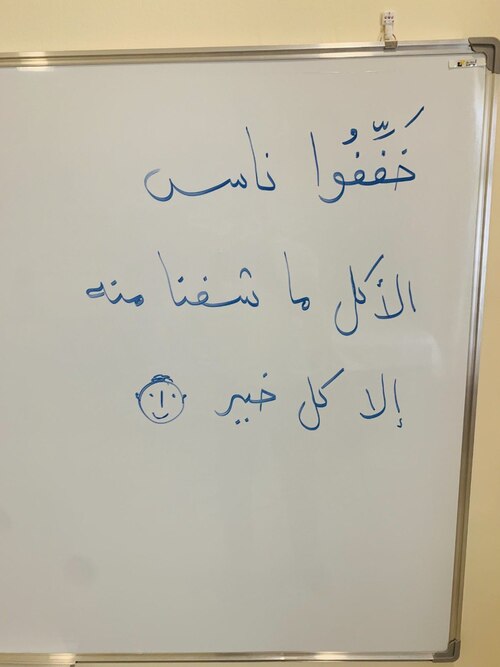 خَفِّفُوا ناس
الأكل ما شفنا منه
إلا كل خير